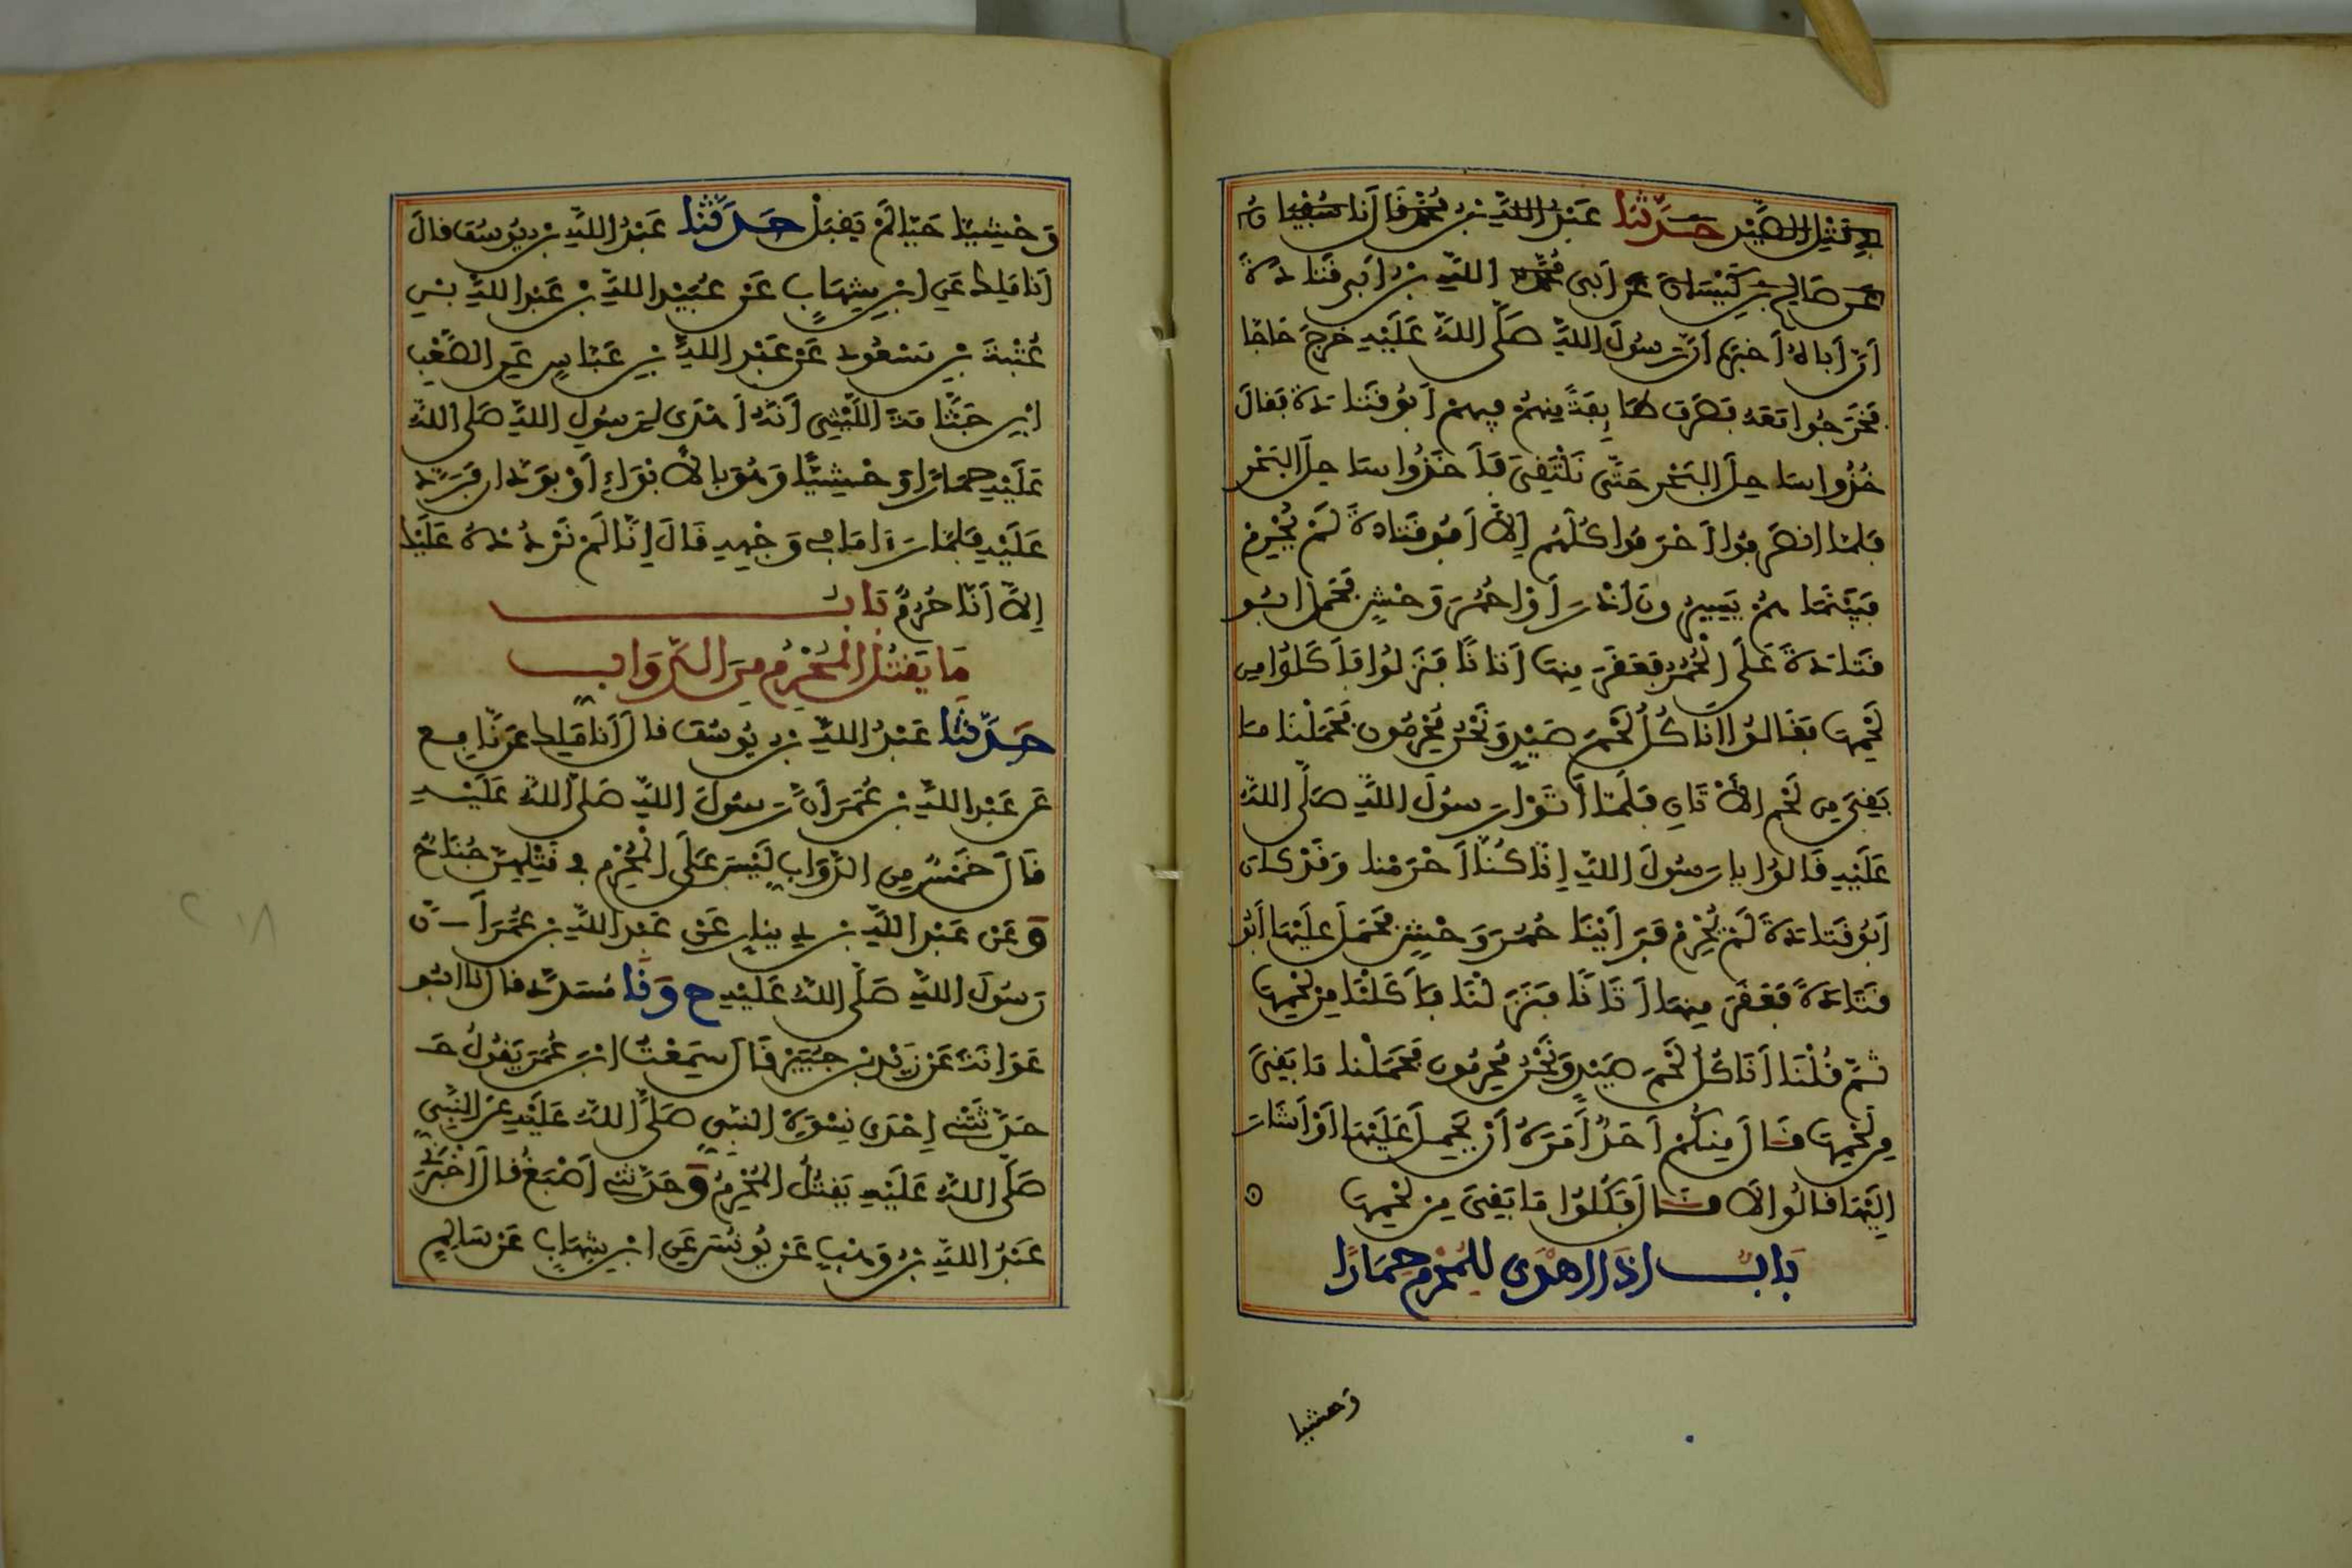 في قتل الصيد حَدَّثَنَا عَبْدُ اللَّهِ بْنُ مُحَمَّد قَالَ أَنَا سُفْيَانُ
عَنْ صَالِحِ بْنِ كَيْسَانَ عَنْ أَبِي مُحَمَّد اللَّهِ بْنُ أَبِي قَتَادَةَ
أَنَّ أَبَاهُ أَخْبَرَهُ أَنَّ رَسُولَ اللَّهِ صَلَّى اللَّهُ عَلَيْهِ خَرَجَ حَاجًّا
فَخَرَجُوا مَعَهُ فَصَرَفَ طَائِفَةً مِنْهُمْ فِيهِمْ أَبُو قَتَادَةَ فَقَالَ
خُذُوا سَاحِلَ الْبَحْرِ حَتَّى نَلْتَقِيَ فَأَخَذُوا سَاحِلَ الْبَحْرِ
فَلَمَّا انْصَرَفُوا أَحْرَمُوا كُلُّهُم إِلَّا أَبُو قَتَادَةَ لَمْ يُحْرِمْ
فَبَيْنَمَا هُمْ يَسِيرُونَ إِذْ رَأَوْا حُمُرَ وَحْشٍ فَحَمَلَ ابُو
قَتَادَةَ عَلَى الْحُمُرِ فَعَقَرَ مِنْهَا أَتَانًا فَنَزَلُوا فَأَكَلُوا مِن
لَحْمِهَا فَقَالُوا أَنَاكُلُ لَحْمَ صَيْدٍ وَنَحْنُ مُحْرِمُونَ فَحَمَلْنَا مَا
بَقِيَ مِن لَحْمِ الْأَتَانِ فَلَمَّا أَتَوْا رَسُولَ اللَّهِ صَلَّى اللَّهُ
عَلَيْهِ قَالُوا يَا رَسُولَ اللَّهِ إِنَّا كُنَّا أَحْرَمْنَا وَقَدْ كَانَ
أَبُو قَتَادَةَ لَمْ يُحْرِمْ فَرَأَيْنَا حُمُرَ وَحْشٍ فَحَمَلَ عَلَيْهَا أَبُو
قَتَادَةَ فَعَقَرَ مِنْهَا أَتَانًا فَنَزَلْنَا فَأَكَلْنَا مِنْ لَحْمِهَا
ثُمَّ قُلْنَا أَنَاكُلُ لَحْمَ صَيْدٍ وَنَحْنُ مُحْرِمُونَ فَحَمَلْنَا مَا بَقِيَ
مِن لَحْمِهَا قَالَ مِنْكُمْ أَحَدٌ أَمَرَهُ أَنْ يَحْمِلَ عَلَيْهَا أَوْ أَشَارَ
إِلَيْهَا قَالُوا لَا قَالَ فَكُلُوا مَا بَقِيَ مِنْ لَحْمِهَا
بَابُ إِذَا أُهْدِيَ لِلْمُحْرِمِ حِمَارًا
وحشيا
وَحْشِيًّا حَيًّا لَمْ يَقْبَلْ حَدَّثَنَا عَبْدُ اللَّهِ بْنُ يُوسُفَ قَالَ
أَنَا مَلِكٌ عَنِ ابْنِ شِهَابٍ عَنْ عُبَيْدِ اللَّهِ بْنِ عَبْدِ اللَّهِ بْنِ
عُتْبَةَ بْنِ مَسْعُودٍ عَنْ عَبْدِ اللَّهِ بْنِ عَبَّاسٍ عَنِ الصَّعْبِ
ابْنِ جَثَّامَةَ اللَّيْثِيِّ أَنَّهُ أَهْدَى لِرَسُولِ اللَّهِ صَلَّى اللَّهُ
عَلَيْهِ حِمَارًا وَحْشِيًّا وَهُوَ بِالْأَبْوَاءِ أَوْ بِوَدَّانَ فَرَدَّهُ
عَلَيْهِ فَلَمَّا رَأَى مَا فِي وَجْهِهِ قَالَ إِنَّا لَمْ نَرُدَّهُ عَلَيْكَ
إِلَّا أَنَّا حُرُمٌ بَابُ
مَا يَقْتُلُ الْمُحْرِمُ مِنَ الدَّوَابِّ
حَدَّثَنَا عَبْدُ اللَّهِ بْنُ يُوسُفَ قَالَ أَنَا مَلِكٌ عَنْ نَافِعٍ
عَنْ عَبْدِ اللَّهِ بْنِ عُمَرَ أَنَّ رَسُولَ اللَّهِ صَلَّى اللَّهُ عَلَيْهِ
قَالَ خَمْسٌ مِنَ الدَّوَابِّ لَيْسَ عَلَى الْمُحْرِمِ فِي قَتْلِهِنَّ جُنَاحٌ
وَعَنْ عَبْدِ اللَّهِ بْنِ دِينَارٍ عَنْ عَبْدِ اللَّهِ بْنِ عُمَرَ أَنَّ
رَسُولَ اللَّهِ صَلَّى اللَّهُ عَلَيْهِ ح وَنَا مُسَدَّدٌ قَالَ نَا ابُو
عَوَانَةَ عَنْ زَيْدِ بْنِ جُبَيْرٍ قَالَ سَمِعْتُ ابْنَ عُمَرَ يَقُولُ حَـ
حَدَّثَتْنِي إِحْدَى نِسْوَةِ النَّبِيِّ صَلَّى اللَّهُ عَلَيْهِ عَنِ النَّبِيِّ
صَلَّى اللَّهُ عَلَيْهِ يَقْتُلُ الْمُحْرِمُ وَحَدَّثَنِي أَصْبَغُ قَالَ أَخْبَرَنِي
عَبْدُ اللَّهِ بْنُ وَهْبٍ عَنْ يُونُسَ عَنِ ابْنِ شِهَابٍ عَنْ سَالِمٍ